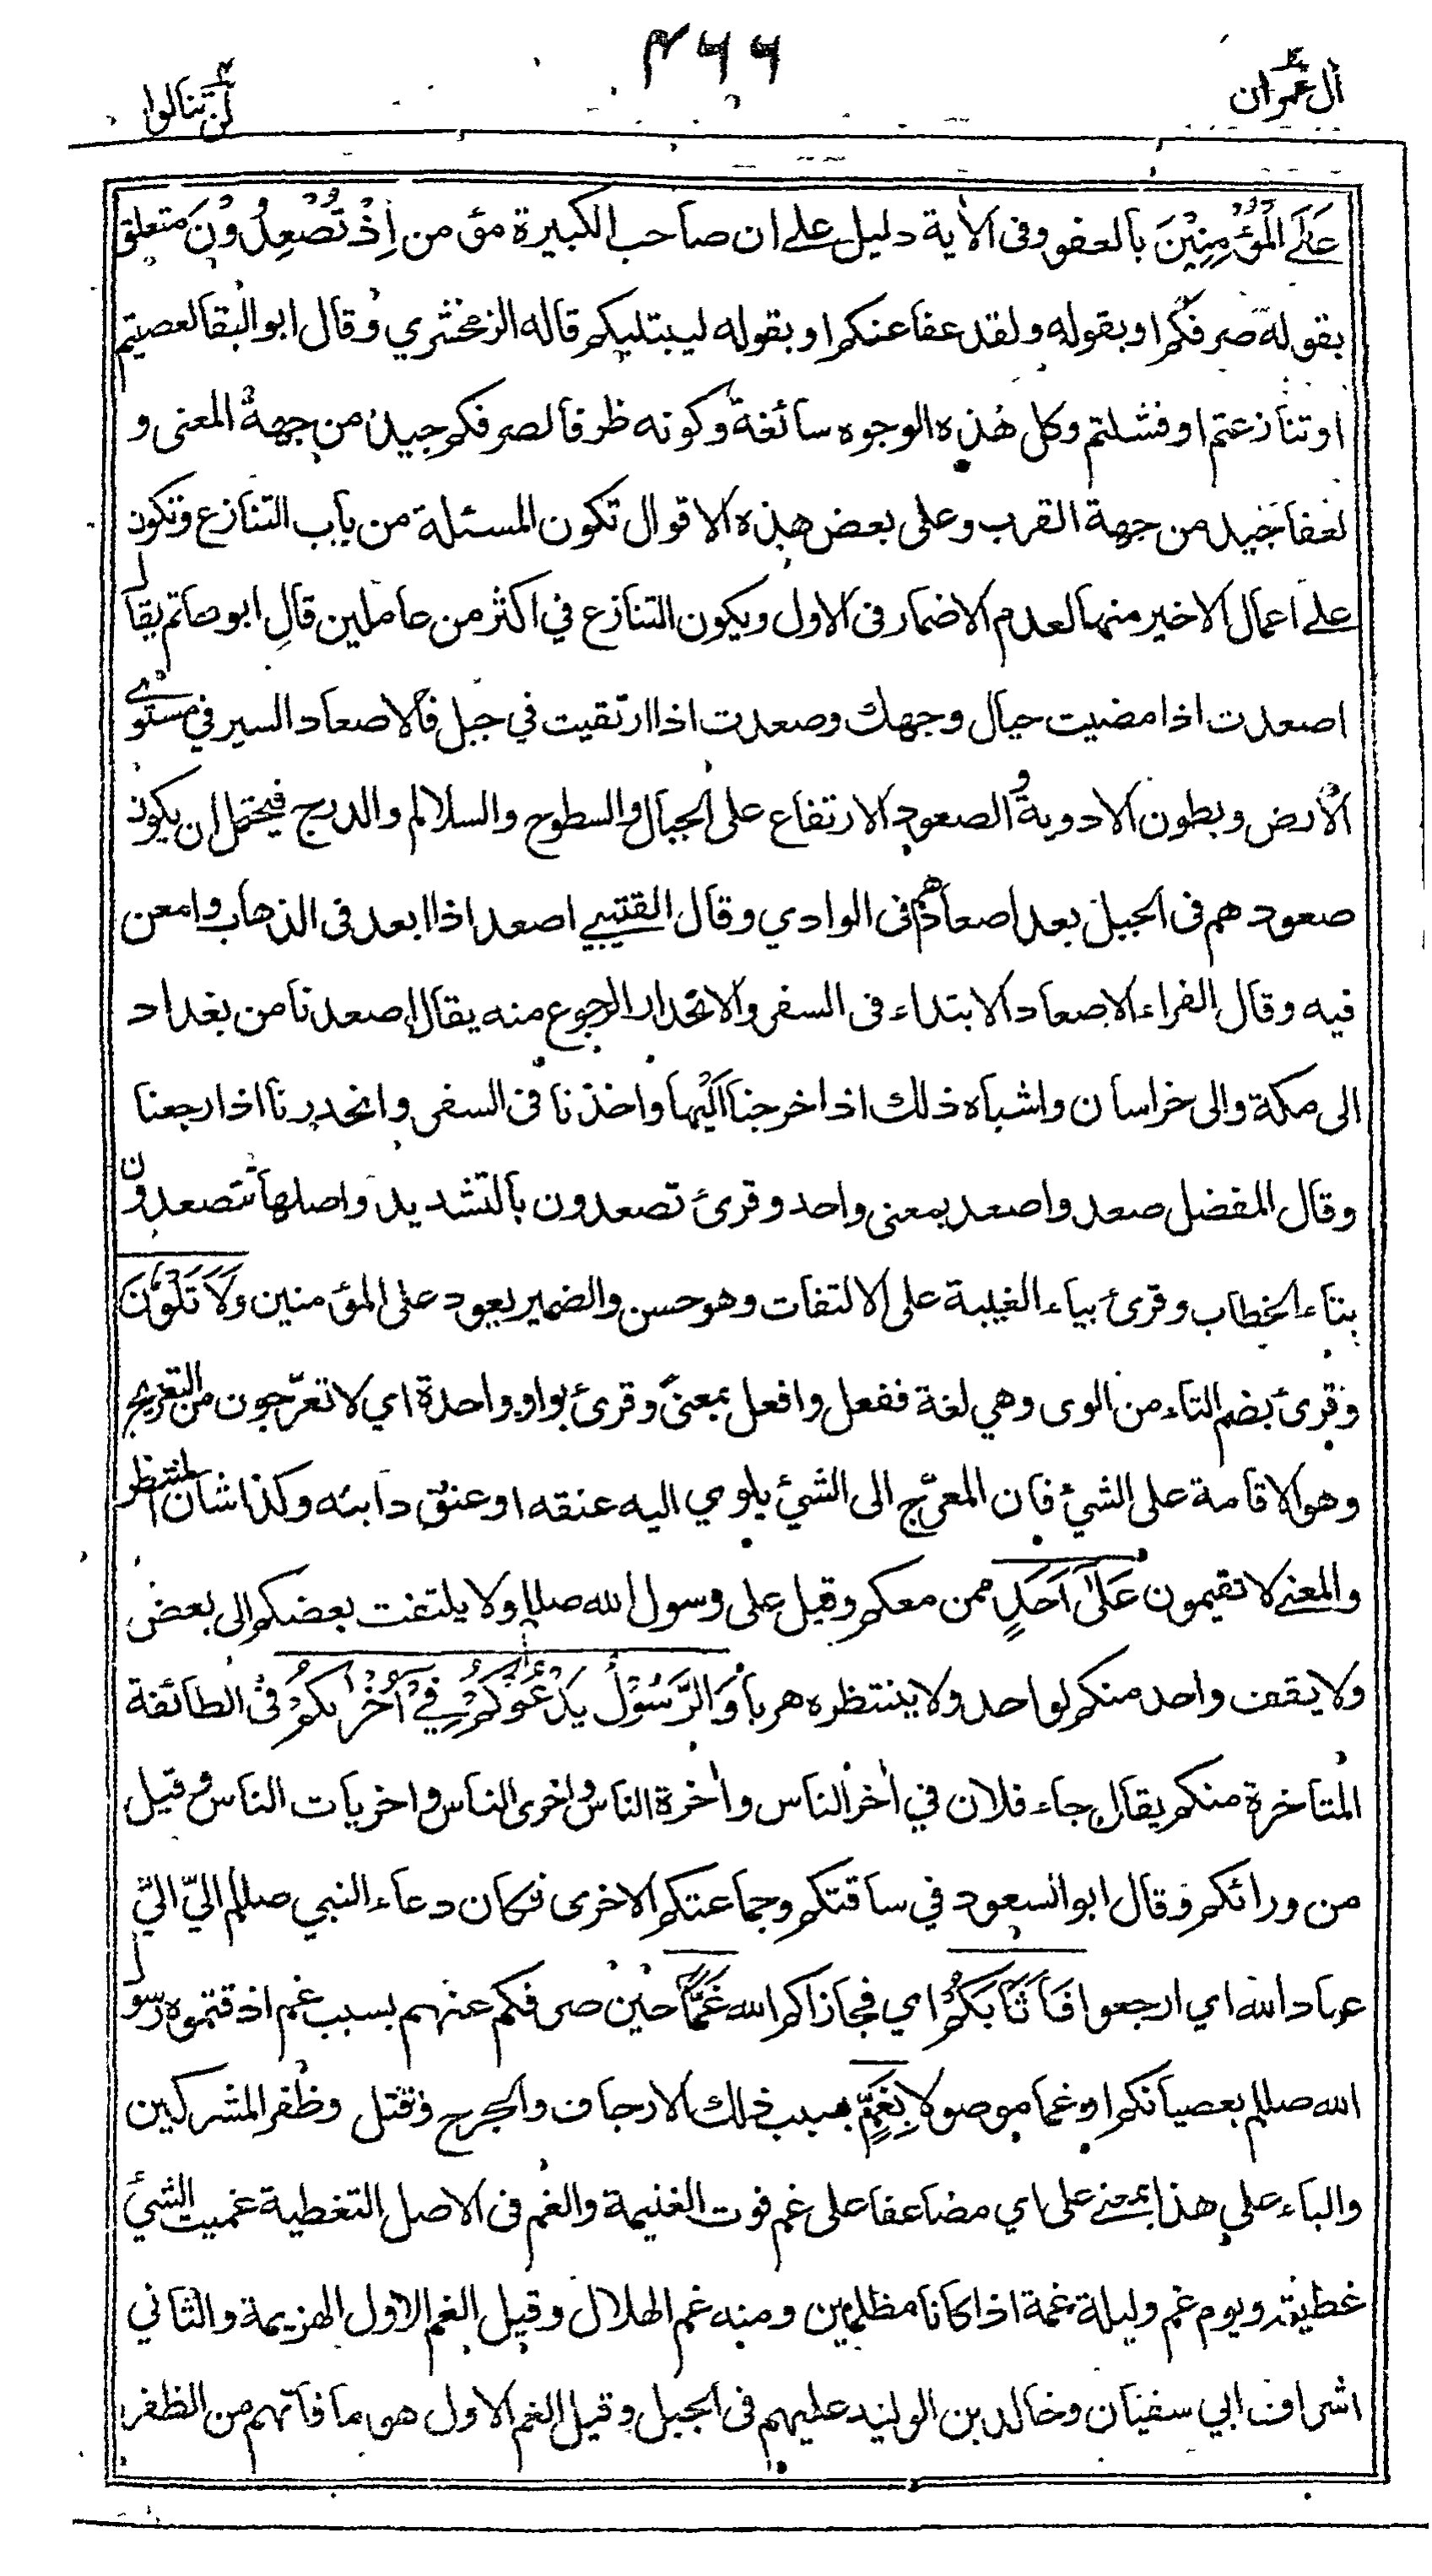 ال عمران ٤٦٦ لن تنالوا
عَلَى الْمُؤْمِنِيْنَ بالعفو وفى الاٰية دليل على ان صاحب الكبيرة مؤمن اِذْ تُصْعِدُوْنَ متعلق
بقوله صرفكم او بقوله ولقد عفا عنكم او بقوله ليبتليكم قاله الزمخشري وقال ابو البقا لعصيتم
او تنازعتم او فشلتم وكل هذه الوجوه سائغة وكونه ظرفا لصرفكم جيد من جهة المعنى و
لعفا جيد من جهة القرب وعلى بعض هذه الاقوال تكون المسئلة من باب التنازع وتكون
على اعمال الاخير منها لعدم الاضمار فى الاول ويكون التنازع في اكثر من عاملين قال ابو حاتم يقال
اصعدت اذا مضيت حيال وجهك وصعدت اذا ارتقيت في جبل فالاصعاد السير في مستوى
الأرض وبطون الادوية والصعود الارتفاع على الجبال والسطوح والسلالم والدرج فيحتمل ان يكون
صعودهم فى الجبل بعد اصعادهم فى الوادي وقال القتيبي اصعد اذا ابعد فى الذهاب وامعن
فيه وقال الفراء الاصعاد الابتداء فى السفر والانحدار الرجوع منه يقال اصعدنا من بغداد
الى مكة والى خراسان واشباه ذلك اذا خرجنا اليها واخذنا فى السفر وانحدرنا اذا رجعنا
وقال المفضل صعد واصعد بمعنى واحد وقرئ تصعدون بالتشديد واصلها تتصعدون
بتاء الخطاب وقرئ بياء الغيبة على الالتفات وهو حسن والضمير يعود على المؤمنين وَلَا تَلْوٗنَ
وقرئ بضم التاء من الوى وهي لغة ففعل وافعل بمعنى وقرئ بواو واحدة اي لا تعرّجون من التعريج
وهو الاقامة على الشئ فان المعرّج الى الشئ يلوي اليه عنقه او عنق دابته وكذا شان المنتظر
والمعنى لا تقيمون عَلٰى اَحَدٍ ممن معكم وقيل على رسول الله صللم ولا يلتفت بعضكم الى بعض
ولا يقف واحد منكم لواحد ولا ينتظره هربا وَالرَّسُوْلُ يَدْعُوْكُمْ فِيْ اُخْرٰىكُمْ فى الطائفة
المتأخرة منكم يقال جاء فلان في اٰخر الناس واٰخرة الناس واخرى الناس واخريات الناس وقيل
من ورائكم وقال ابو السعود في ساقتكم وجماعتكم الاخرى فكان دعاء النبي صللم اليّ اليّ
عباد الله اي ارجعوا فَاَثَابَكُمْ اي فجازاكم الله غَمًّا حين صرفكم عنهم بسبب غم اذقتموه رسول
الله صللم بعصيانكم او غما موصولا بِغَمٍّ بسبب ذلك الارجاف والجرح وقتل وظفر المشركين
والباء على هذا بمعنى على اي مضاعفا على غم فوت الغنيمة والغم فى الاصل التغطية غميت الشئ
غطيته ويوم غم وليلة غمة اذا كانا مظلمين ومنه غم الهلال وقيل الغم الاول الهزيمة والثاني
اشراف ابي سفيان وخالد بن الوليد عليهم فى الجبل وقيل الغم الاول هو ما فاتهم من الظفر